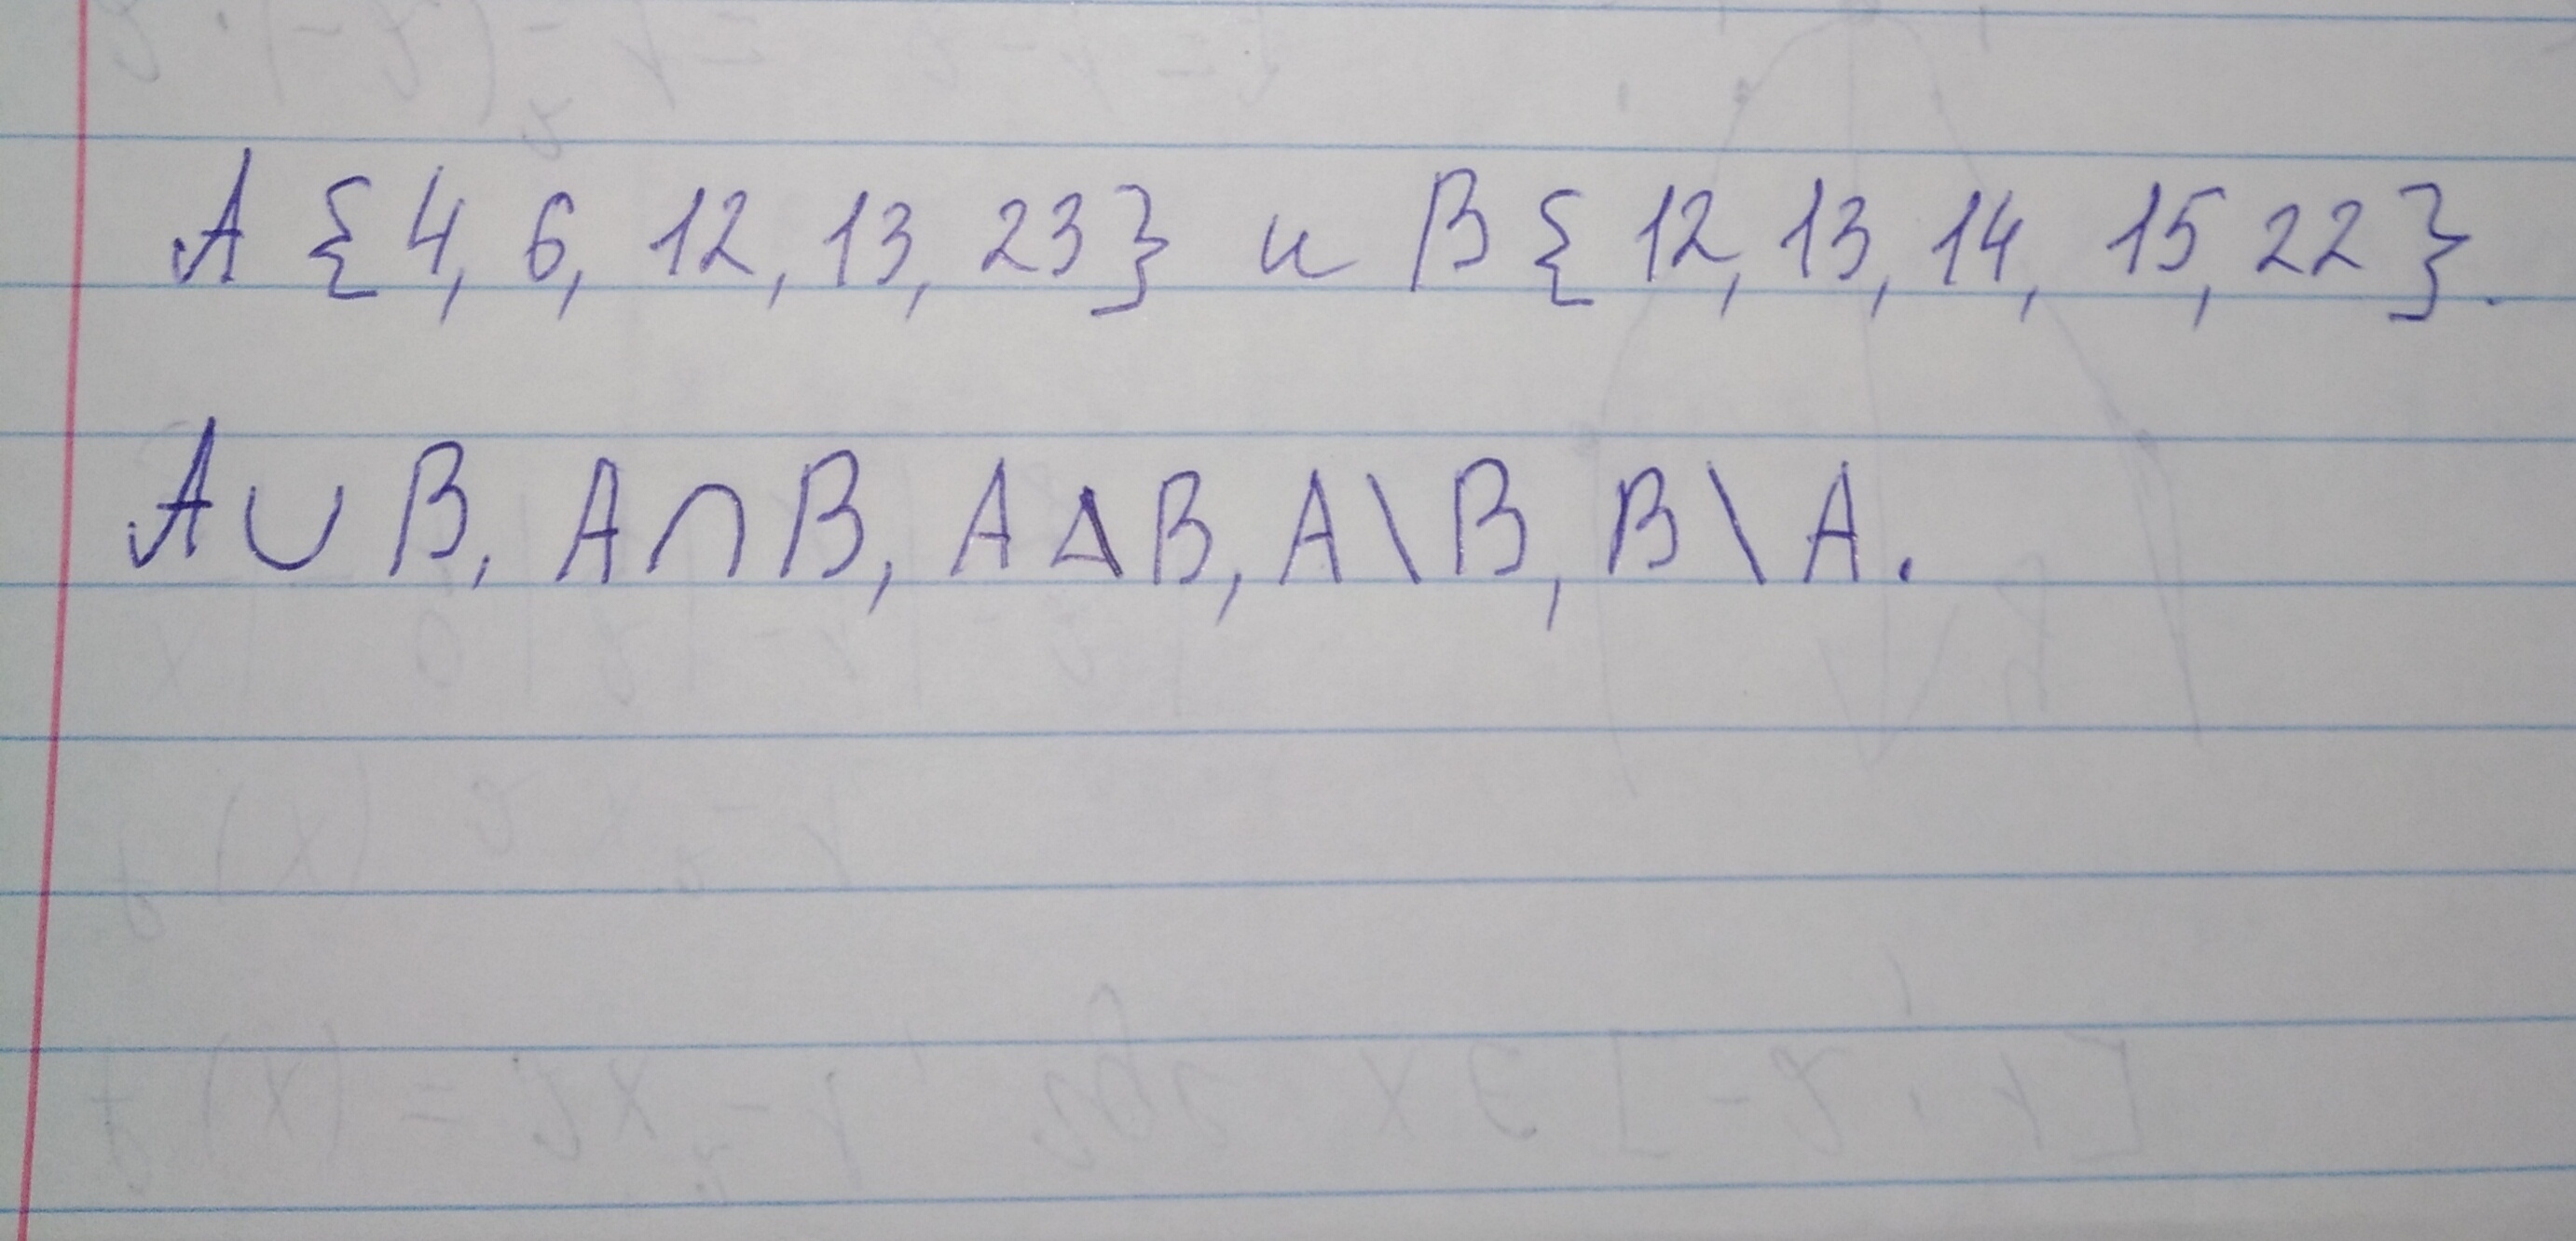 A {4, 6, 12, 13, 23} и B {12, 13, 14, 15, 22}.
A∪B, A∩B, A∆B, A\B, B\A.